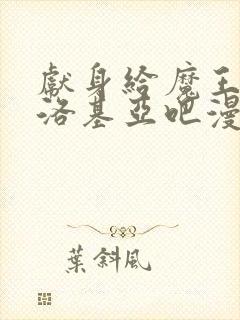 獻身給魔王
洛基亞吧漫
葉斜風